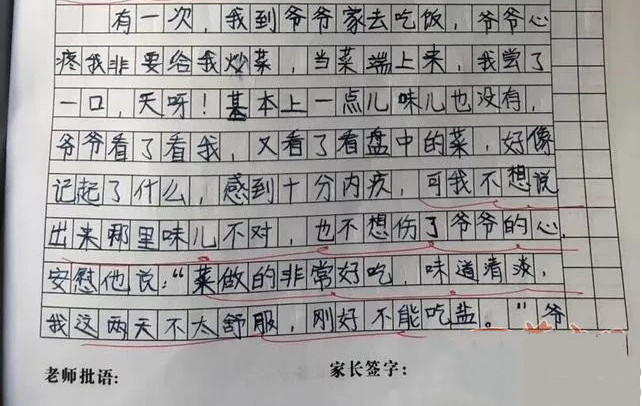 有一次，我到爷爷家去吃饭，爷爷心
疼我非要给我炒菜，当菜端上来，我尝了
一口，天呀！基本上一点儿味儿也没有，
爷爷看了看我，又看了看盘中的菜，好像
记起了什么，感到十分内疚，可我不想说
出来那里味儿不对，也不想伤了爷爷的心，
安慰他说：“菜做的非常好吃，味道清淡，
我这两天不太舒服，刚好不能吃盐。”爷
老师批语： 家长签字：